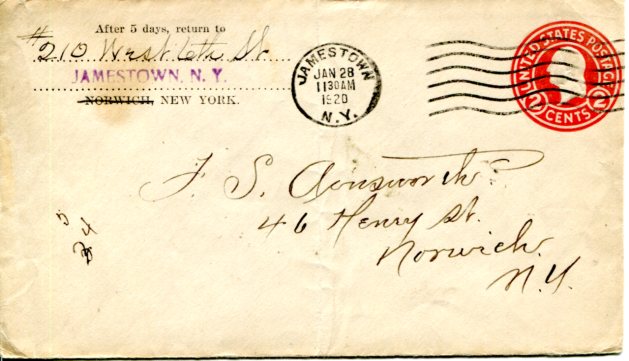 After 5 days, return to
#210 West 6th St
JAMESTOWN, N. Y.
NORWICH, NEW YORK.
JAMESTOWN
JAN 28
1130AM
1920
N.Y.
UNITED STATES POSTAGE
2 CENTS 2
F. S. Ainsworth
46 Henry St.
Norwich
N.Y.